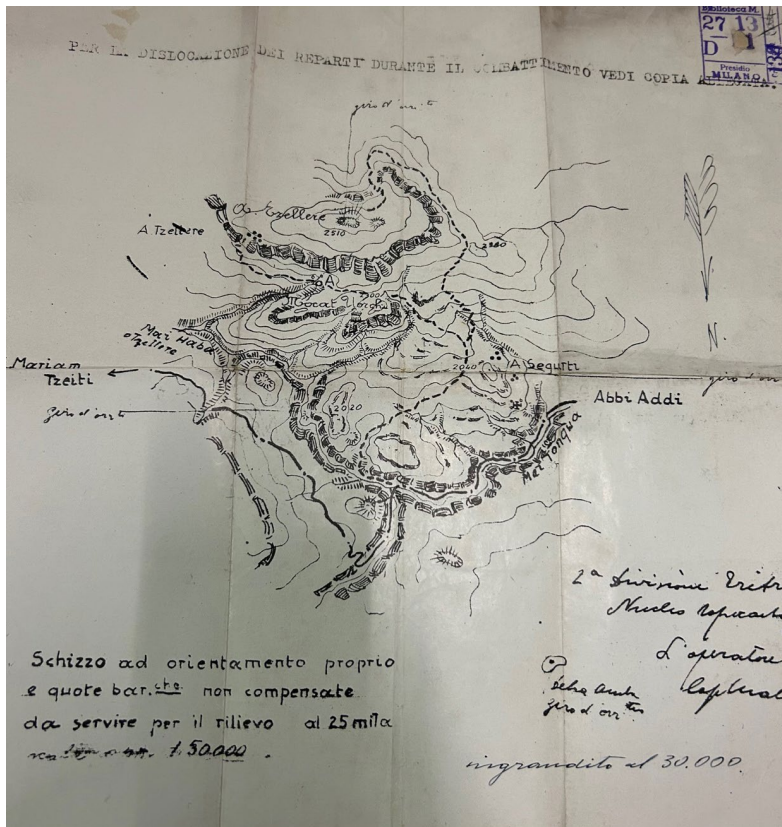 Biblioteca M.
27 13
D 1
Presidio
MILANO
PER LA DISLOCAZIONE DEI REPARTI DURANTE IL COMBATTIMENTO VEDI COPIA ALLEGATA.
giro d'orr.te
A. Tzellere
2510
A Tzellere
2280
A
Mai Hala
Tzellere
2040
A Segurti
Mariam
Tzeiti
giro d'orr.te
2020
Abbi Addi
Mai Tonqua
N.
giro d'orr
2ª Divisione Eritr
Nucleo
L'operatore
giro d'orr.te
Schizzo ad orientamento proprio
e quote bar.che non compensate
da servire per il rilievo al 25 mila
1/50.000.
ingrandito al 30.000.